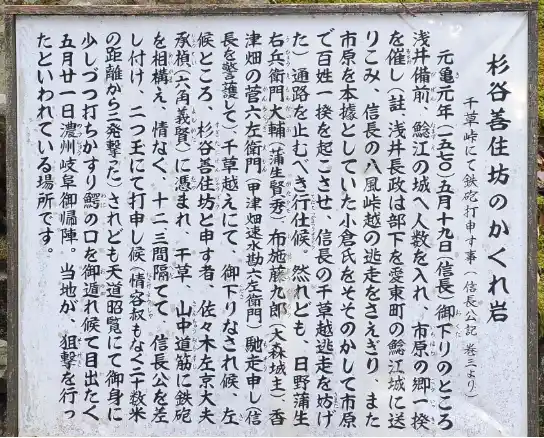 杉谷善住坊のかくれ岩
千草峠にて鉄砲打申す事（信長公記 巻三より）
元亀元年（一五七〇）五月十九日（信長）御下りのところ
浅井備前、鯰江の城へ人数を入れ、市原の郷一揆
を催し（註 浅井長政は部下を愛東町の鯰江城に送
りこみ、信長の八風峠越の逃走をさえぎり、また
市原を本據としていた小倉氏をそそのかして市原
で百姓一揆を起こさせ、信長の千草越逃走を妨げ
た）通路を止むべき行仕候。然れども、日野蒲生
右兵衛門大輔（蒲生賢秀）、布施藤九郎（大森城主）、香
津畑の菅六左衛門（甲津畑速水勘六左衛門）馳走申し（信
長を警護して）、千草越えにて、御下りなされ候、左
候ところ、杉谷善住坊と申す者、佐々木左京大夫
承禎（六角義賢）に憑まれ、千草、山中道筋に鉄砲
を相構え、情なく、十二三間隔てて、信長公を差
し付け、二つ玉にて打申し候（情容赦もなく二十数米
の距離から二発撃た）されども天道昭覧にて御身に
少しづつ打ちかすり鰐の口を御遁れ候て目出たく
五月廿一日濃州岐阜御帰陣。当地が、狙撃を行っ
たといわれている場所です。